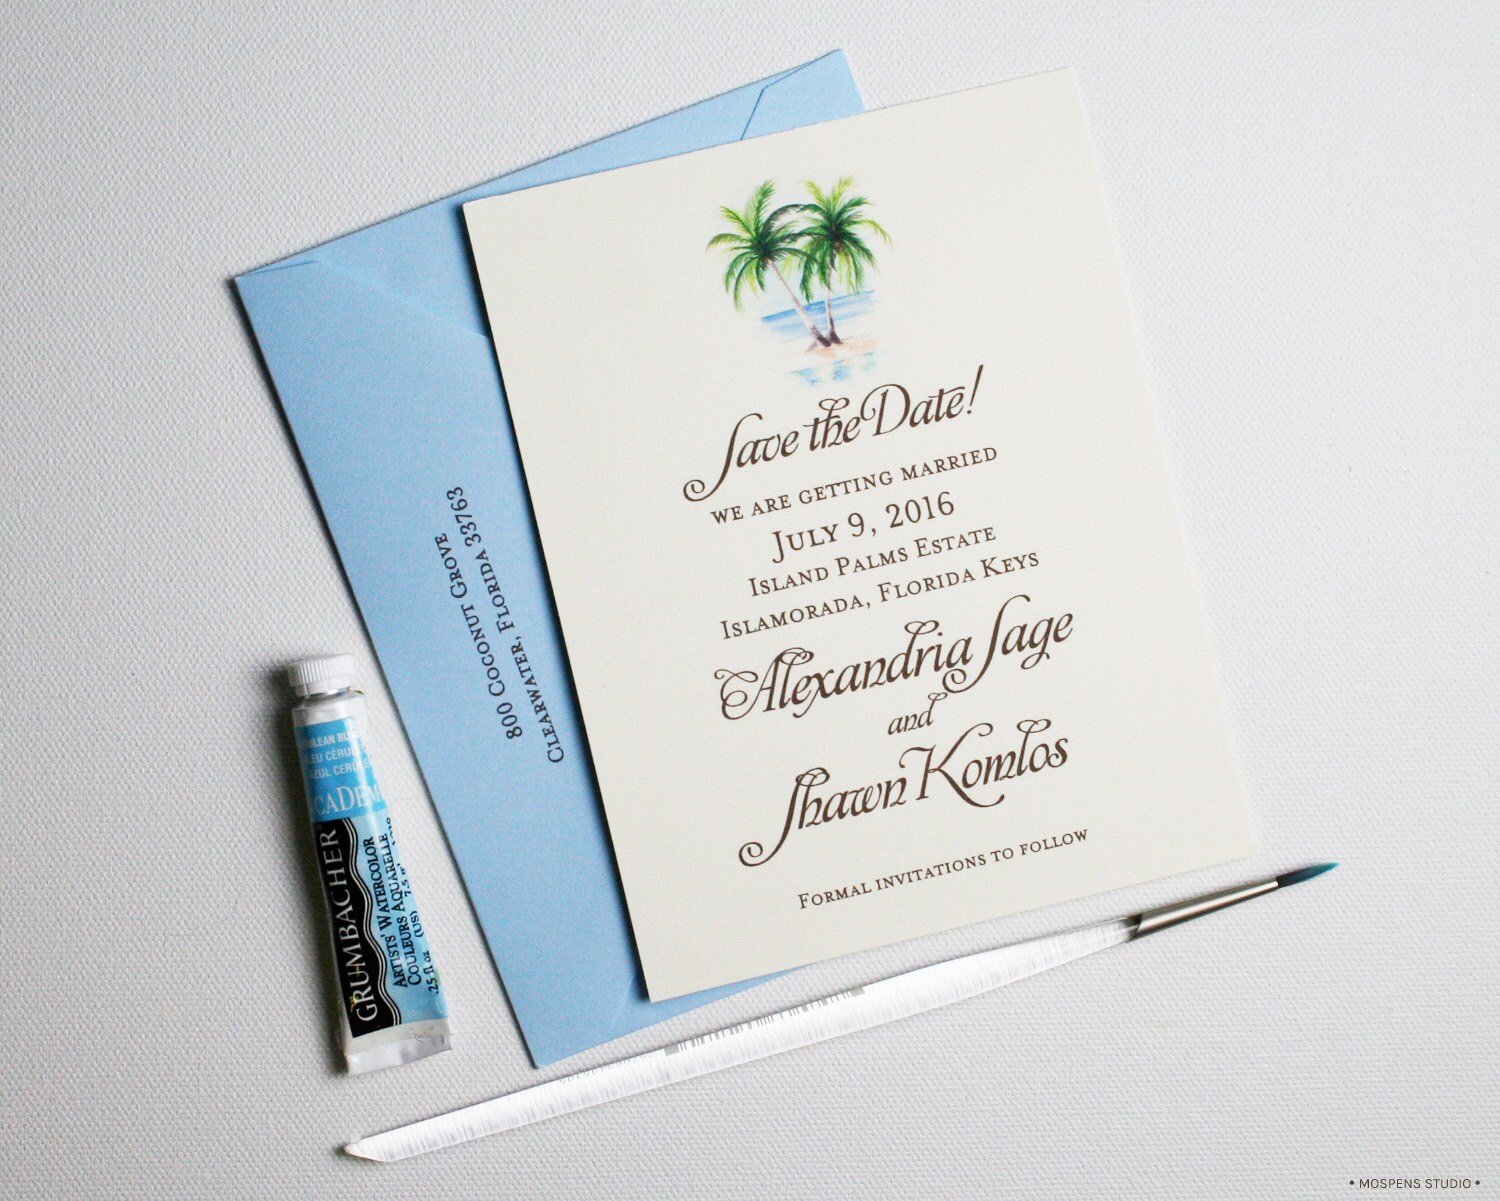 Save the Date!
WE ARE GETTING MARRIED
JULY 9, 2016
ISLAND PALMS ESTATE
ISLAMORADA, FLORIDA KEYS
Alexandria Sage
and
Shawn Komlos
FORMAL INVITATIONS TO FOLLOW
800 COCONUT GROVE
CLEARWATER, FLORIDA 33763
ACADEM
GRUMBACHER
ARTISTS' WATERCOLOR
COULEURS AQUARELLE
.25 fl oz (US) 7.5
• MOSPENS STUDIO •